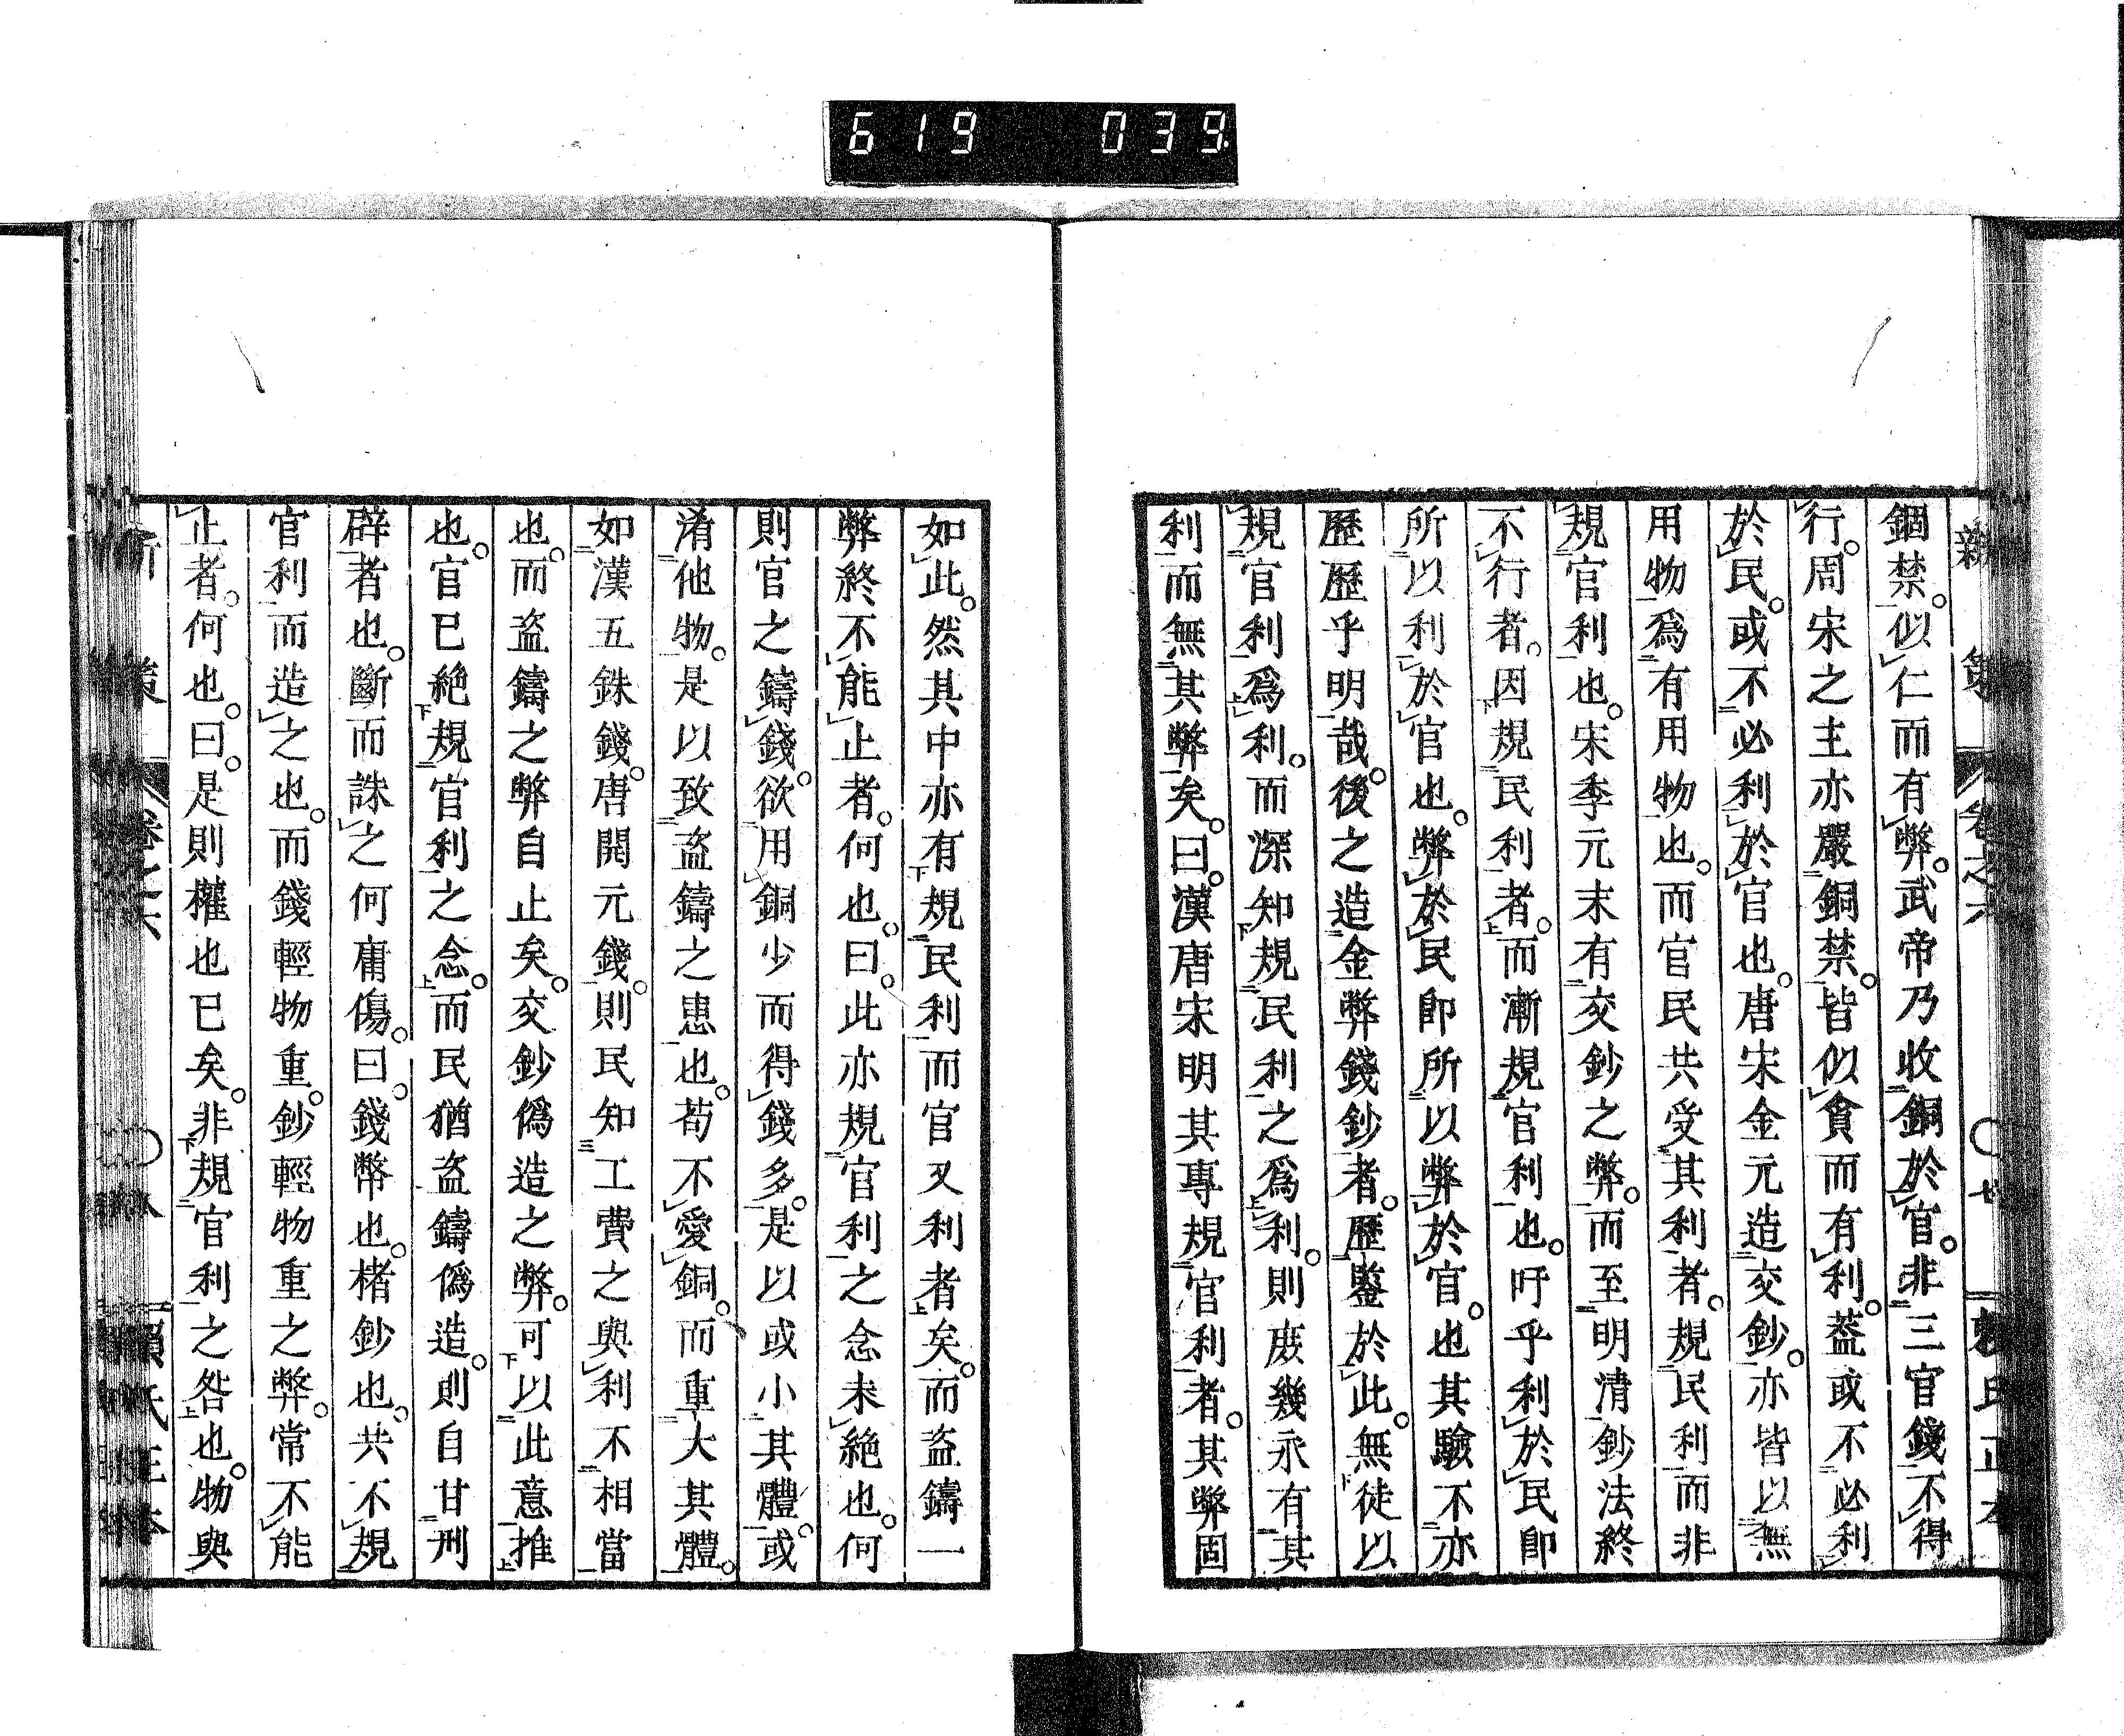 619 039
錮禁。似仁而有弊。武帝乃收銅於官。非三官錢不得
行。周宋之主亦嚴銅禁。皆似貪而有利。蓋或不必利
於民。或不必利於官也。唐宋金元造交鈔。亦皆以無
用物爲有用物也。而官民共受其利者。規民利而非
規官利也。宋季元末有交鈔之弊。而至明清鈔法終
不行者。因規民利者。而漸規官利也。吁乎利於民卽
所以利於官也。弊於民卽所以弊於官也其驗不亦
歷歷乎明哉。後之造金弊錢鈔者。歷鑒於此。無徒以
規官利爲利。而深知規民利之爲利。則庻幾永有其
利而無其弊矣。曰。漢唐宋明其專規官利者。其弊固
如此。然其中亦有規民利而官又利者矣。而盗鑄一
弊終不能止者。何也。曰。此亦規官利之念未絕也。何
則官之鑄錢。欲用銅少而得錢多。是以或小其體。或
淆他物。是以致盗鑄之患也。苟不愛銅。而重大其體。
如漢五銖錢。唐開元錢。則民知工費之與利不相當
也。而盗鑄之弊自止矣。交鈔僞造之弊。可以此意推
也。官已絕規官利之念。而民猶盗鑄僞造。則自甘刑
辟者也。斷而誅之何庸傷。曰。錢幣也。楮鈔也。共不規
官利而造之也。而錢輕物重。鈔輕物重之弊。常不能
止者。何也。曰。是則權也已矣。非規官利之咎也。物與
新策 卷之六